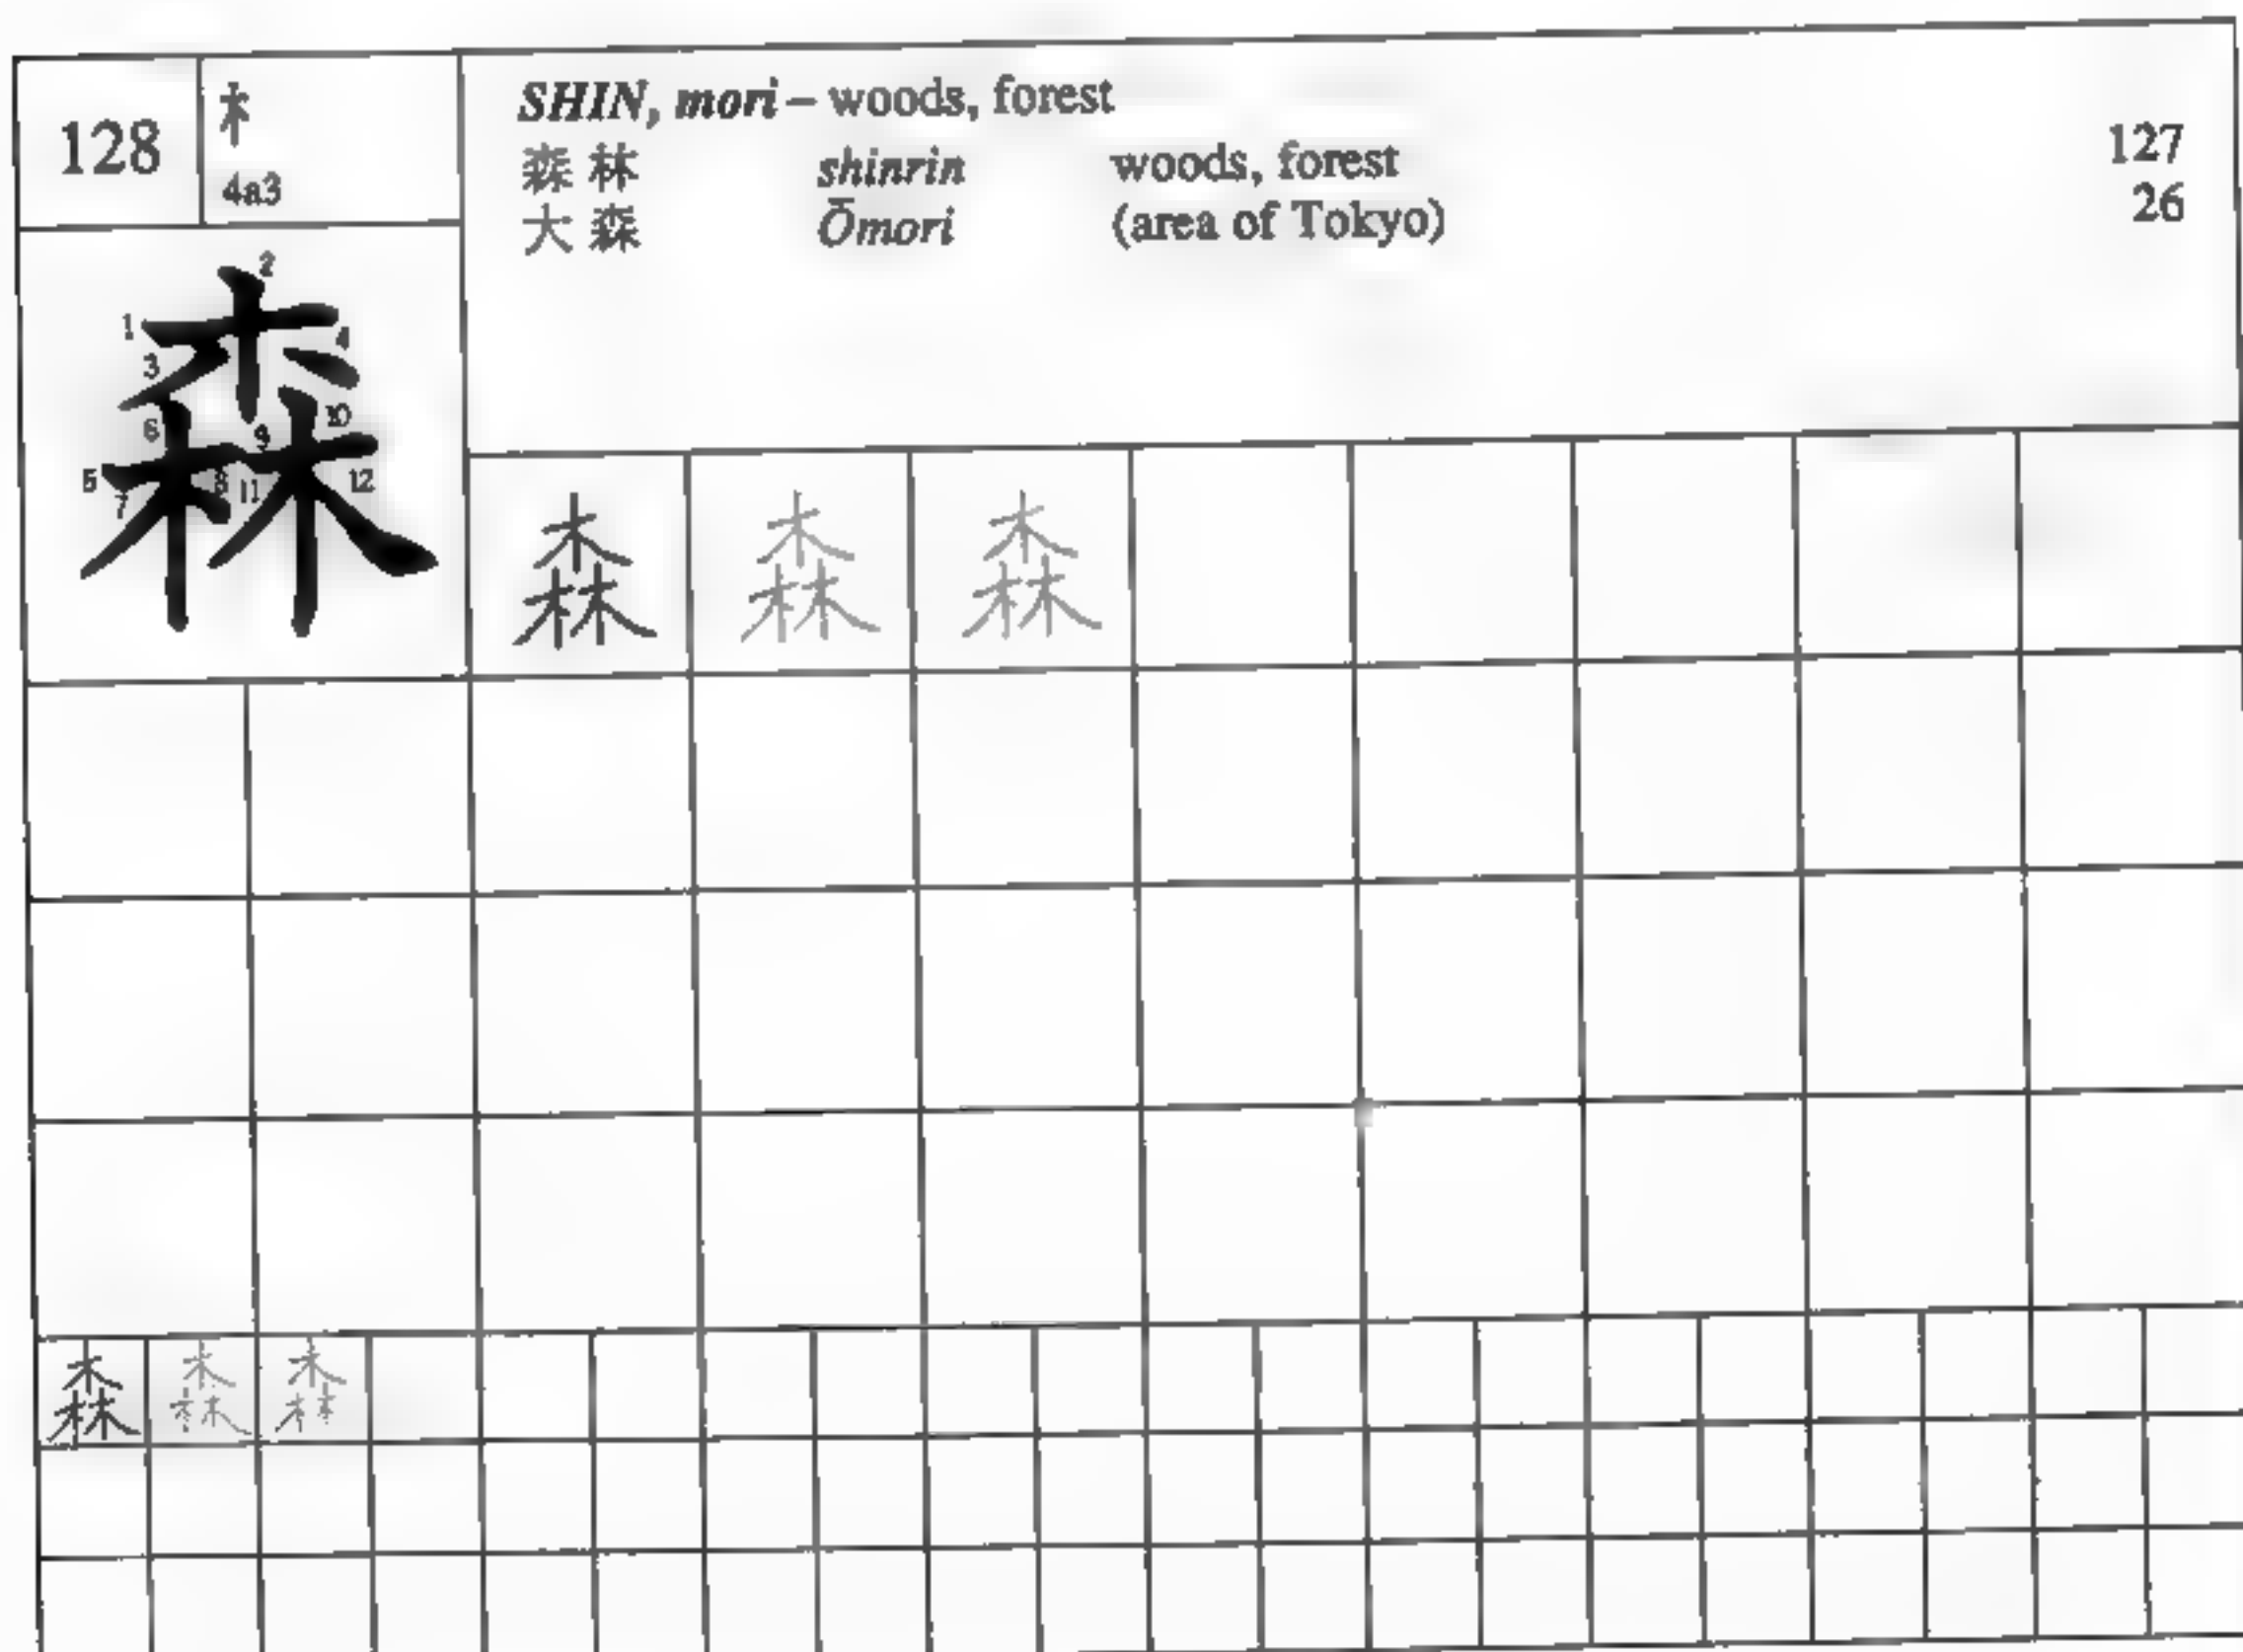 128 木 4a3
SHIN, mori – woods, forest
森林 shinrin woods, forest 127
大森 Ōmori (area of Tokyo) 26
森
1 2 3 4 5 6 7 8 9 10 11 12
森 森 森
森 森 森